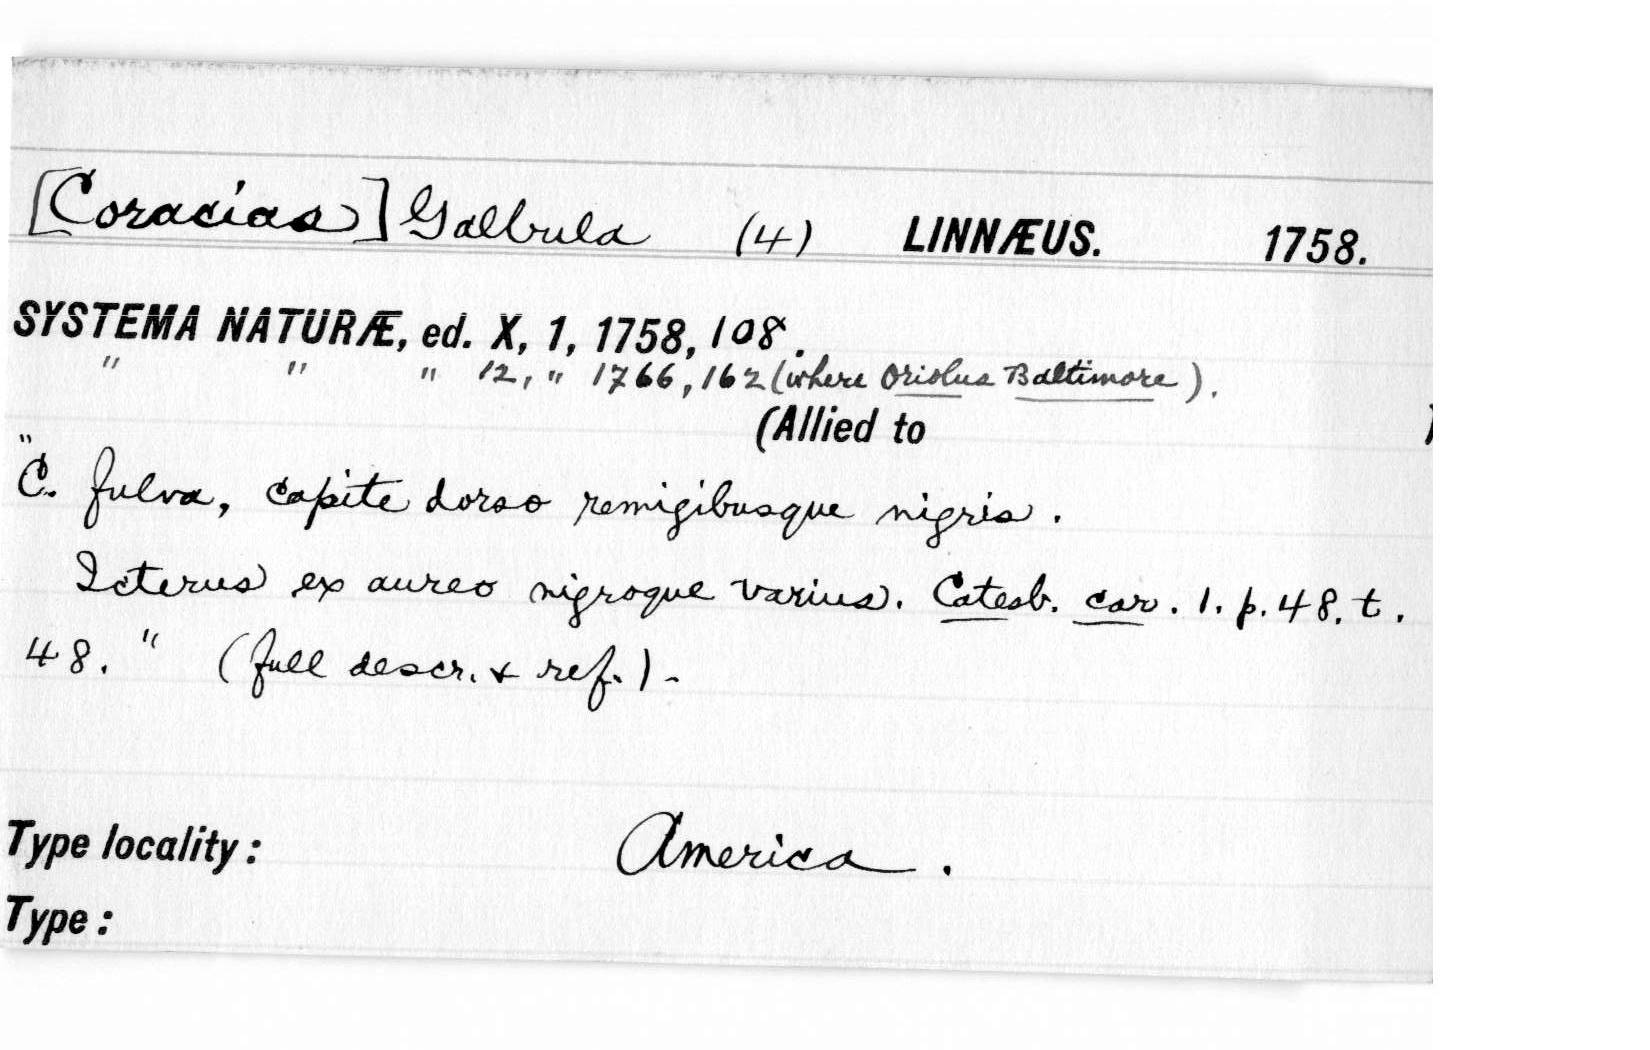 [Coracias] Galbula (4) LINNÆUS. 1758.
SYSTEMA NATURÆ, ed. X, 1, 1758, 108.
" " " 12, " 1766, 162 (where Oriolus Baltimore).
(Allied to )
"C. fulva, capite dorso remigibusque nigris.
Icterus ex aureo nigroque varius. Catesb. car. 1. p. 48. t.
48." (full descr. & ref.).
Type locality: America.
Type: